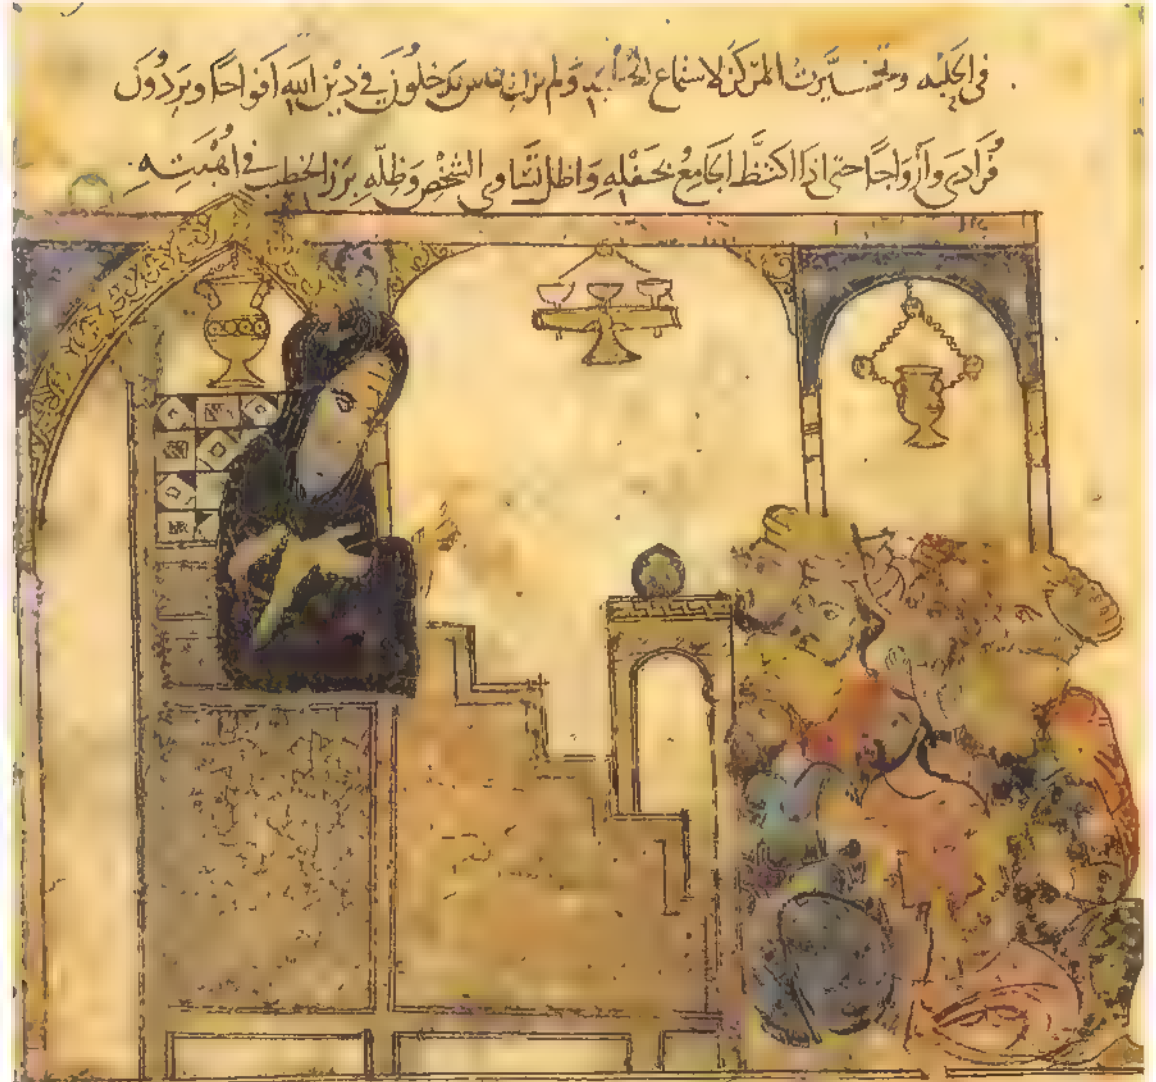 في الحلبة وتخيرت المركز لاستماع الخطبة ولم يزل الناس يدخلون في دين الله أفواجًا ويردون
فُرَادَى وَأَزْوَاجًا حتى إذا اكتظَّ الجَامِعُ بحَفْلِهِ وَاظل تَسَاوى الشخصِ وَظِلِّهِ برز الخطيب في أُهْبَتِهِ